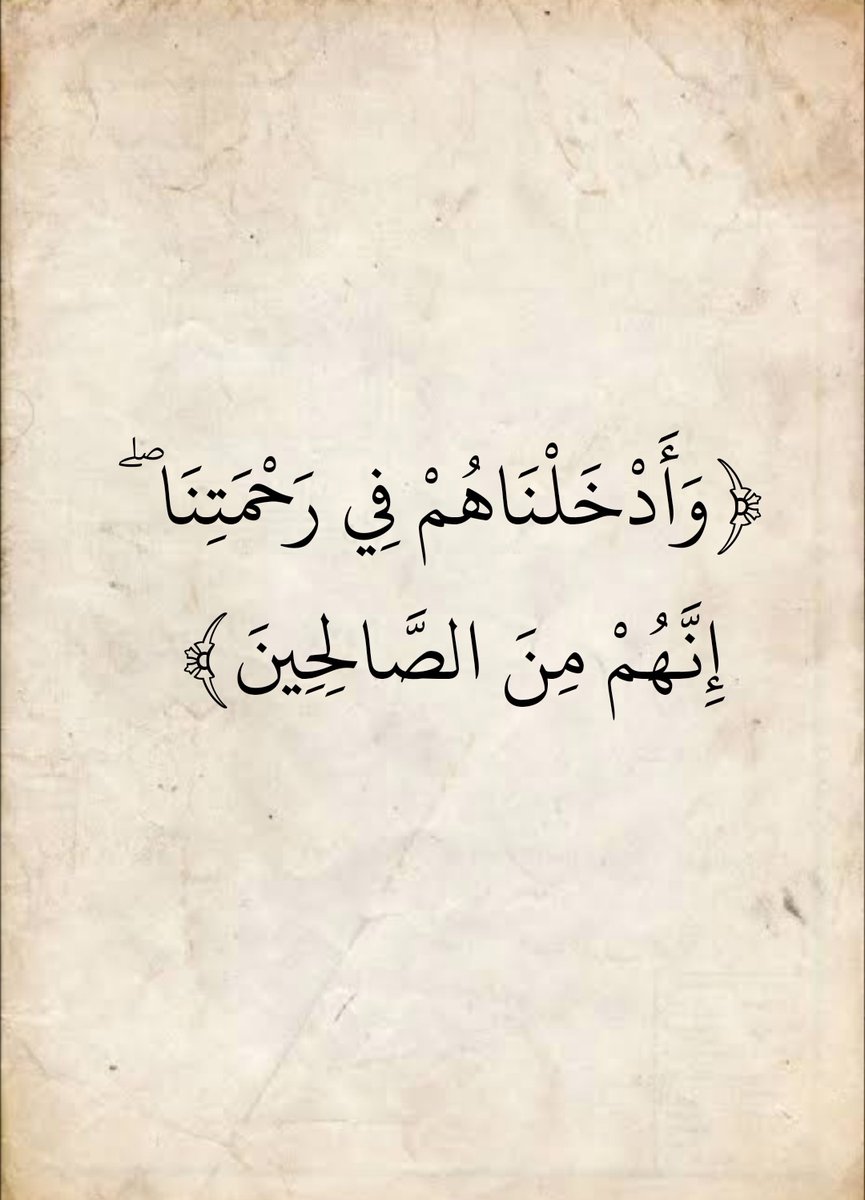 ﴿وَأَدْخَلْنَاهُمْ فِي رَحْمَتِنَا ۖ
إِنَّهُمْ مِنَ الصَّالِحِينَ﴾